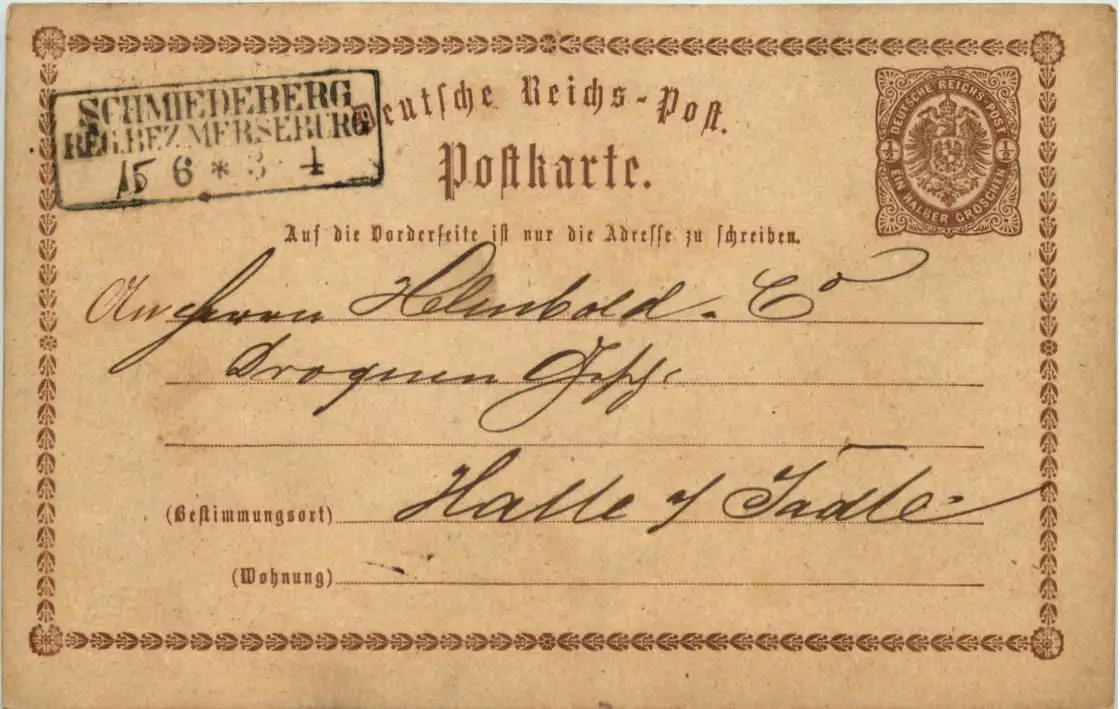 SCHMIEDEBERG
REG.BEZ.MERSEBURG
15 6 * 3 - 4
Deutsche Reichs-Post.
Postkarte.
DEUTSCHE REICHS-POST
½ ½
EIN HALBER GROSCHEN
Auf die Vorderseite ist nur die Adresse zu schreiben.
An Herrn Helmbold. Co
Droguen Gesch.
(Bestimmungsort) Halle a/
(Wohnung)